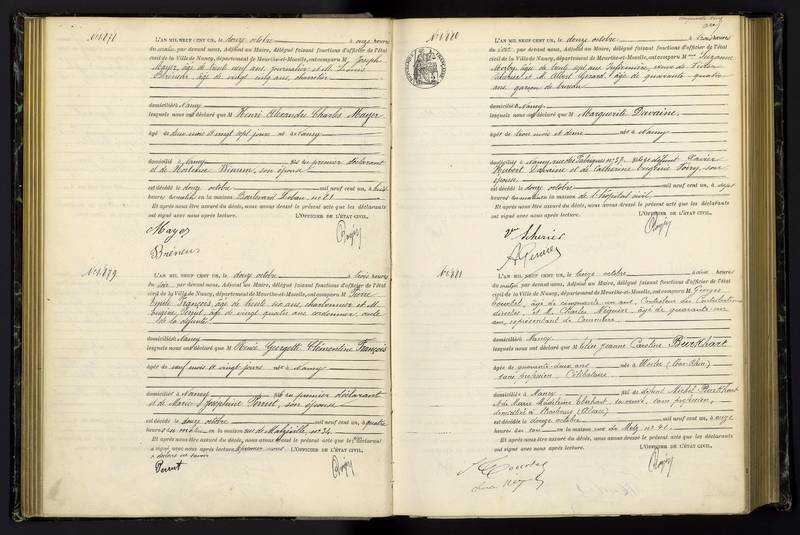 L'AN MIL NEUF CENT UN, le douze octobre à onze heures
du matin, par devant nous, Adjoint au Maire, délégué faisant fonctions d'officier de l'état
civil de la Ville de Nancy, département de Meurthe-et-Moselle, ont comparu M Joseph
Mayer, âgé de trente neuf ans, journalier et M. Louis
âgé de vingt cinq ans, charretier
domiciliés à Nancy
lesquels nous ont déclaré que M Henri Alexandre Charles Mayer
âgé de deux mois et vingt sept jours né à Nancy
domicilié à Nancy fils du premier déclarant
et de Hortense son épouse
est décédé le douze octobre mil neuf cent un, à
heures du matin en la maison Boulevard Lobau nº 21
Et après nous être assuré du décès, nous avons dressé le présent acte que les déclarants
ont signé avec nous après lecture. L'OFFICIER DE L'ÉTAT CIVIL,
Mayer
Nº 1879
L'AN MIL NEUF CENT UN, le douze octobre à trois heures
du soir, par devant nous, Adjoint au Maire, délégué faisant fonctions d'officier de l'état
civil de la Ville de Nancy, département de Meurthe-et-Moselle, ont comparu M Pierre
Emile François, âgé de trente six ans, charbonnier et M.
Eugène Perrut, âgé de vingt quatre ans cordonnier, oncle
de la défunte
domiciliés à Nancy
lesquels nous ont déclaré que M Renée Georgette Clémentine François
âgée de neuf mois et vingt jours née à Nancy
domiciliée à Nancy fille du premier déclarant
et de Marie Joséphine Perrut, son épouse
est décédée le douze octobre mil neuf cent un, à quatre
heures du matin en la maison rue de Malzéville, nº 34
Et après nous être assuré du décès, nous avons dressé le présent acte que le déclarant
a signé avec nous après lecture, L'OFFICIER DE L'ÉTAT CIVIL,
Perrut
Nº 1880
L'AN MIL NEUF CENT UN, le douze octobre à trois heures
du soir, par devant nous, Adjoint au Maire, délégué faisant fonctions d'officier de l'état
civil de la Ville de Nancy, département de Meurthe-et-Moselle, ont comparu Mme Suzanne
âgée de trente sept ans, infirmière, veuve de Victor
et M. Albert Gérard, âgé de quarante quatre
ans, garçon de bureau
domiciliés à Nancy
lesquels nous ont déclaré que M Marguerite Davaine
âgée de trois mois et demi née à Nancy
domiciliée à Nancy rue des Fabriques nº 37 fille de défunt Xavier
Hubert Davaine et de Catherine Eugénie son
épouse
est décédée le douze octobre mil neuf cent un, à sept
heures du matin en la maison de l'hôpital civil
Et après nous être assuré du décès, nous avons dressé le présent acte que les déclarants
ont signé avec nous après lecture. L'OFFICIER DE L'ÉTAT CIVIL,
Nº 1881
L'AN MIL NEUF CENT UN, le treize octobre à dix heures
du matin, par devant nous, Adjoint au Maire, délégué faisant fonctions d'officier de l'état
civil de la Ville de Nancy, département de Meurthe-et-Moselle, ont comparu M Georges
Courtal, âgé de cinquante un ans, Contrôleur des Contributions
directes, et M. Charles Wéguier, âgé de quarante un
ans, représentant de Commerce
domiciliés à Nancy
lesquels nous ont déclaré que M Elise Jeanne Caroline Burkhart
âgée de quarante deux ans née à
sans profession, Célibataire
domiciliée à Nancy fille de défunt Michel Burckhart
et de Marie Madeleine sa veuve, sans profession,
domiciliée à Strasbourg (Alsace)
est décédée le douze octobre mil neuf cent un, à onze
heures du soir en la maison rue de Metz nº 41
Et après nous être assuré du décès, nous avons dressé le présent acte que les déclarants
ont signé avec nous après lecture. L'OFFICIER DE L'ÉTAT CIVIL,